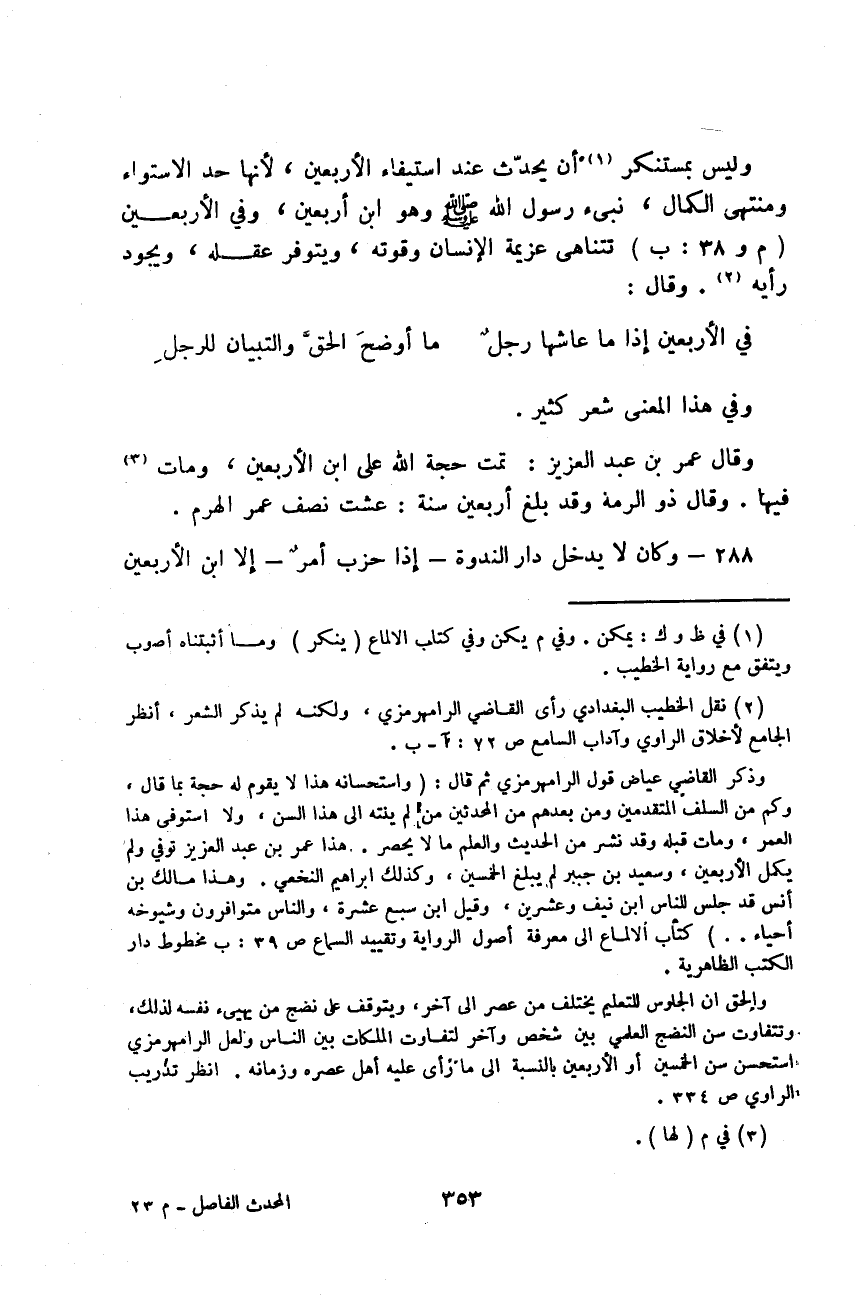 وليس بمستنكر (١) أن يحدّث عند استيفاء الأربعين ، لأنها حد الاستواء
ومنتهى الكمال ، نبىء رسول الله ﷺ وهو ابن أربعين ، وفي الأربعـــين
( م و ٣٨ : ب ) تتناهى عزيمة الإنسان وقوته ، ويتوفر عقـــله ، ويجود
رأيه (٢) . وقال :
في الأربعين إذا ما عاشها رجلٌ ما أوضحَ الحقَّ والتبيان للرجلِ
وفي هذا المعنى شعر كثير .
وقال عمر بن عبد العزيز : تمت حجة الله على ابن الأربعين ، ومات (٣)
فيها . وقال ذو الرمة وقد بلغ أربعين سنة : عشت نصف عمر الهرم .
٢٨٨ – وكان لا يدخل دار الندوة – إذا حزب أمرٌ – إلا ابن الأربعين
(١) في ظ و ك : يمكن . وفي م يكن وفي كتاب الالماع ( ينكر ) ومـــا أثبتناه أصوب
ويتفق مع رواية الخطيب .
(٢) نقل الخطيب البغدادي رأى القـاضي الرامهرمزي ، ولكنـه لم يذكر الشعر ، أنظر
الجامع لأخلاق الراوي وآداب السامع ص ٧٢ : آ – ب .
وذكر القاضي عياض قول الرامهرمزي ثم قال : ( واستحسانه هذا لا يقوم له حجة بما قال ،
وكم من السلف المتقدمين ومن بعدهم من المحدثين من لم ينته الى هذا السن ، ولا استوفى هذا
العمر ، ومات قبله وقد نشر من الحديث والعلم ما لا يحصر . هذا عمر بن عبد العزيز توفي ولم
يكمل الأربعين ، وسعيد بن جبير لم يبلغ الخمسين ، وكذلك ابراهيم النخعي . وهـذا مـالك بن
أنس قد جلس للناس ابن نيف وعشرين ، وقيل ابن سبع عشرة ، والناس متوافرون وشيوخه
أحياء . . ) كتاب الالماع الى معرفة أصول الرواية وتقييد السماع ص ٣٩ : ب مخطوط دار
الكتب الظاهرية .
والحق ان الجلوس للتعليم يختلف من عصر الى آخر ، ويتوقف على نضج من يهيىء نفسه لذلك،
وتتفاوت سن النضج العلمي بين شخص وآخر لتفاوت الملكات بين النـاس ولعل الرامهرمزي
استحسن سن الخمسين أو الأربعين بالنسبة الى ما رأى عليه أهل عصره وزمانه . انظر تدريب
الراوي ص ٣٣٤ .
(٣) في م ( لها ) .
٣٥٣
المحدث الفاصل – م ٢٣